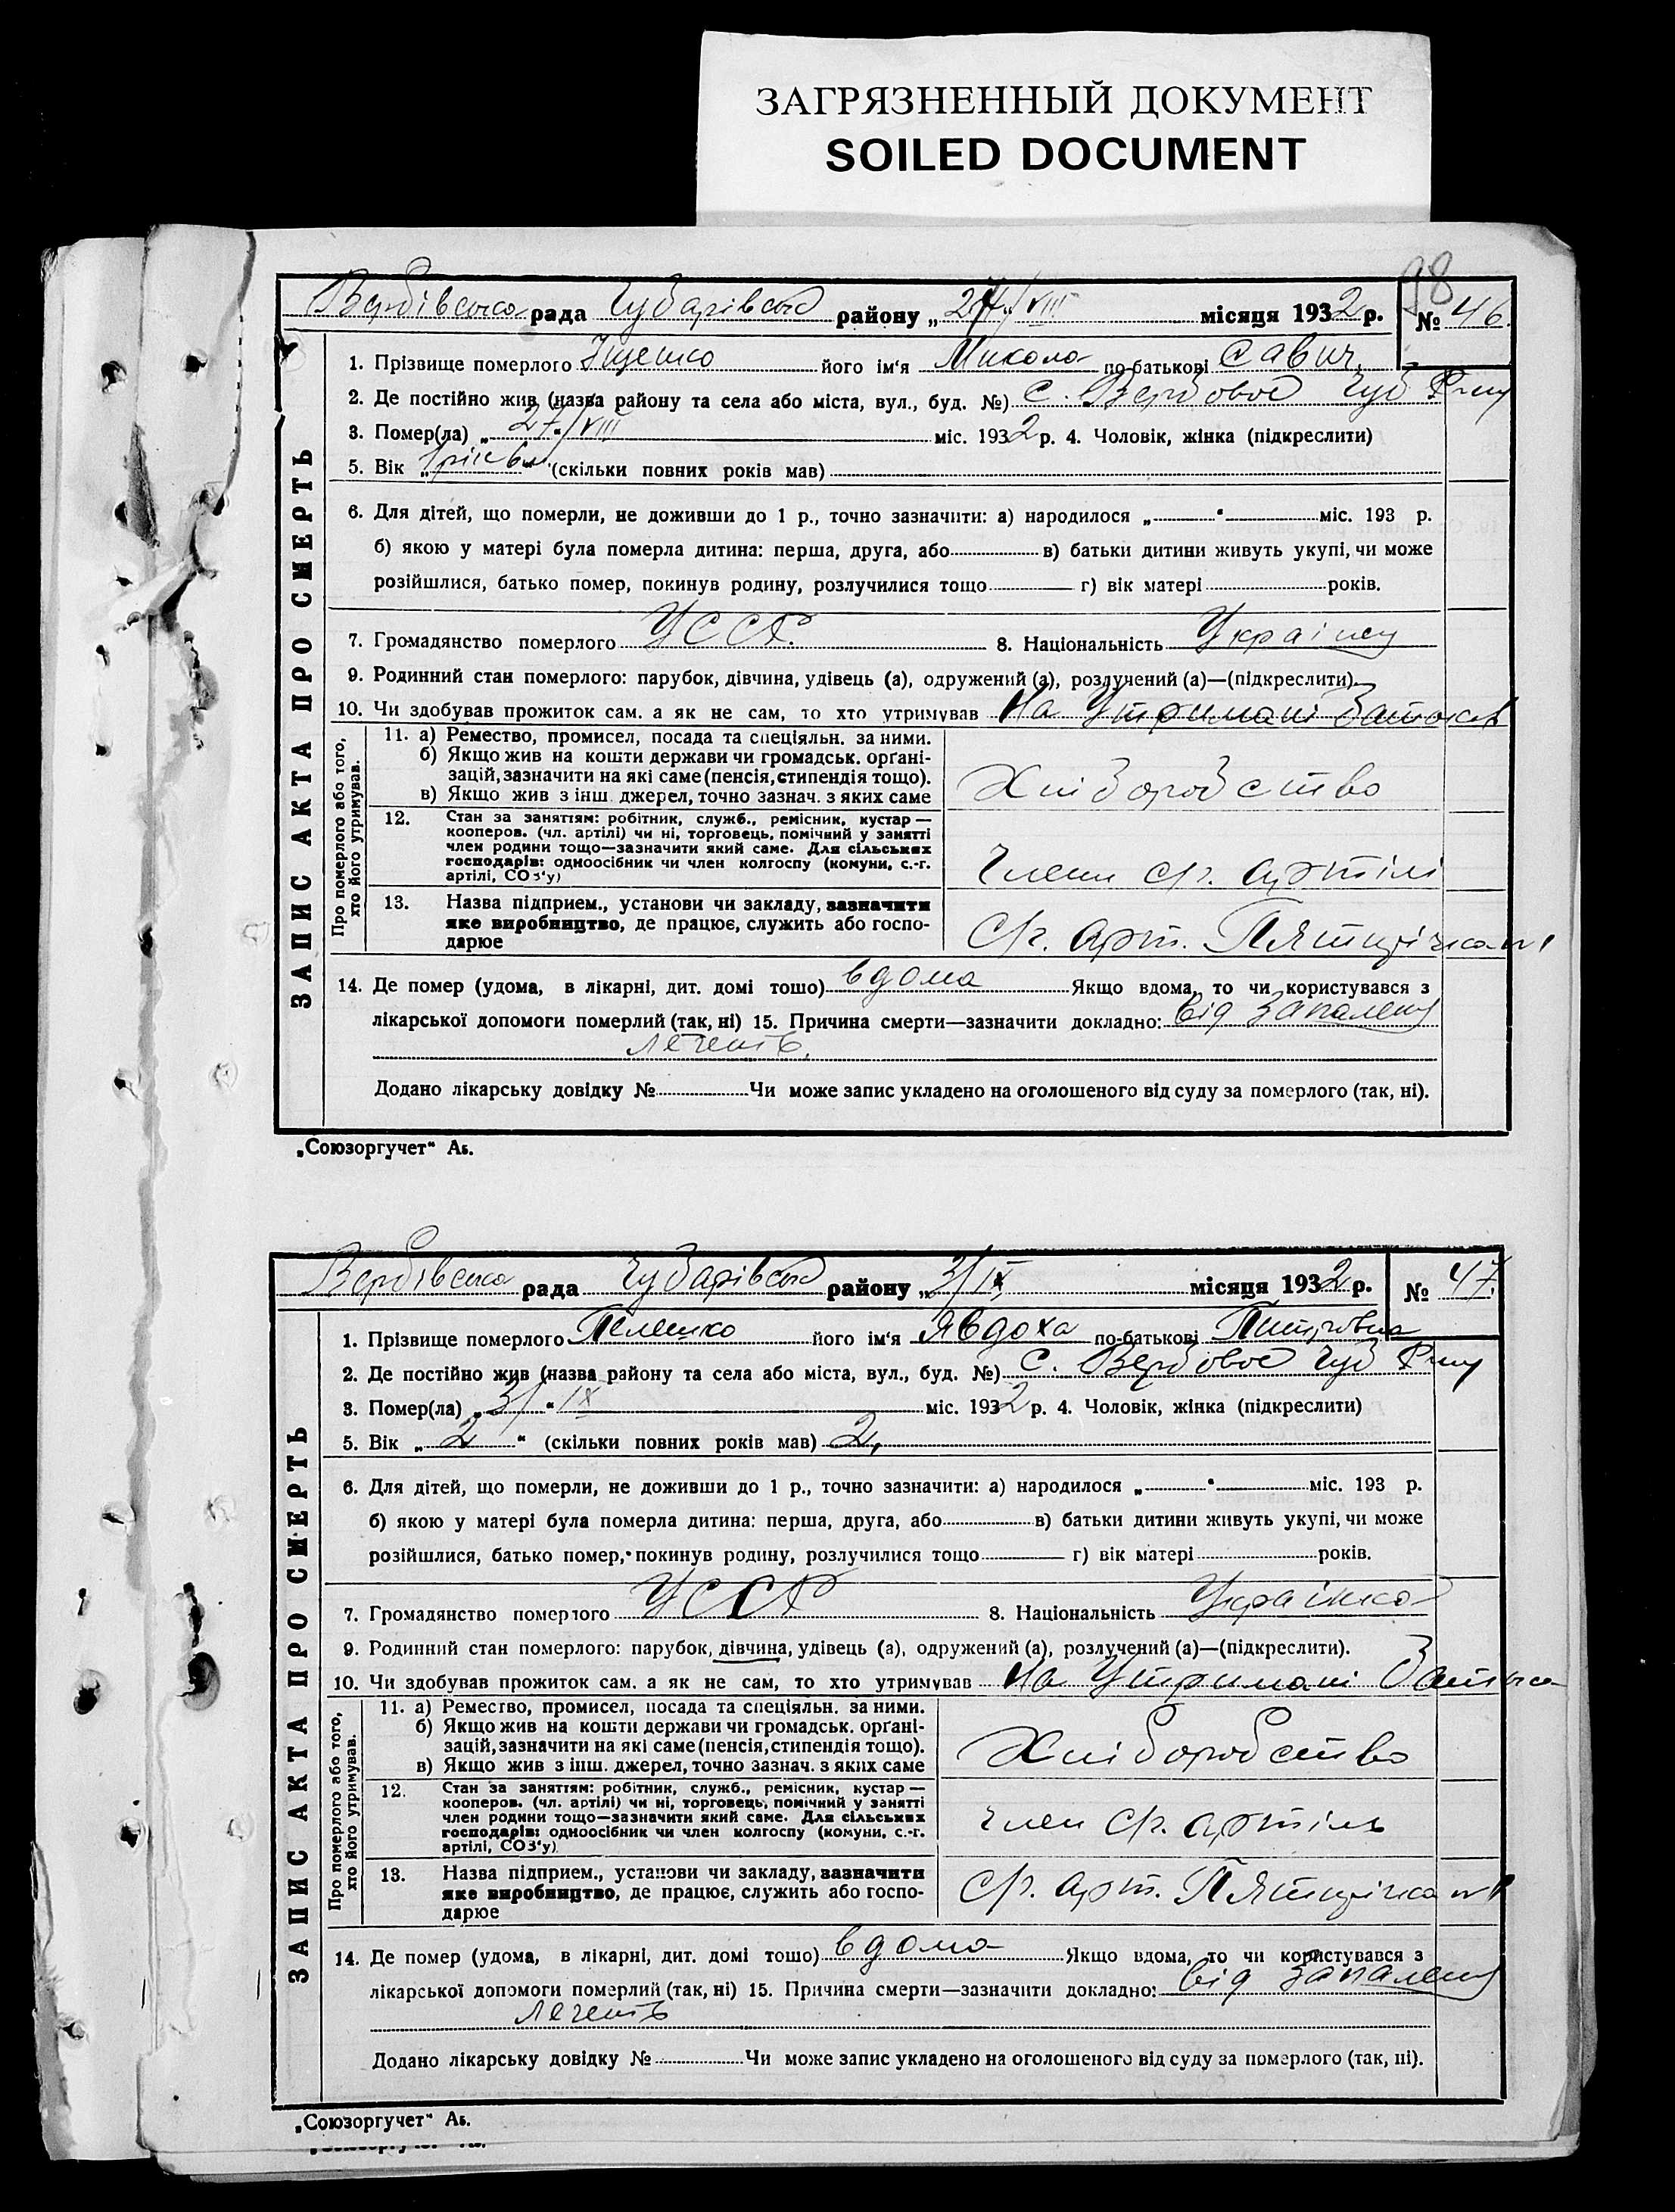 ЗАГРЯЗНЕННЫЙ ДОКУМЕНТ
SOILED DOCUMENT
98
Вербівська рада Чубарівськ району „27/VIII місяця 1932 р. № 46.
ЗАПИС АКТА ПРО СМЕРТЬ
1. Прізвище померлого його ім'я Микола по-батькові Савич
2. Де постійно жив (назва району та села або міста, вул., буд. №) с. Вербовое Чуб Р-ну
3. Помер(ла) „27/VIII міс. 1932 р. 4. Чоловік, жінка (підкреслити)
5. Вік „ “ (скільки повних років мав)
6. Для дітей, що померли, не доживши до 1 р., точно зазначити: а) народилося „ “ міс. 193 р.
б) якою у матері була померла дитина: перша, друга, або в) батьки дитини живуть укупі, чи може
розійшлися, батько помер, покинув родину, розлучилися тощо г) вік матері років.
7. Громадянство померлого УССР. 8. Національність Украінец
9. Родинний стан померлого: парубок, дівчина, удівець (а), одружений (а), розлучений (а)—(підкреслити).
10. Чи здобував прожиток сам. а як не сам, то хто утримував На Утримані Батьков
Про померлого або того,
хто його утримував.
11. а) Ремество, промисел, посада та спеціяльн. за ними.
б) Якщо жив на кошти держави чи громадськ. орґані-
зацій, зазначити на які саме (пенсія, стипендія тощо).
в) Якщо жив з інш. джерел, точно зазнач. з яких саме
Хліборобство
12. Стан за заняттям: робітник, служб., ремісник, кустар—
кооперов. (чл. артілі) чи ні, торговець, помічний у занятті
член родини тощо—зазначити який саме. Для сільських
господарів: одноосібник чи член колгоспу (комуни, с.-г.
артілі, СОЗ'у)
Член с/г. артілі
13. Назва підприєм., установи чи закладу, зазначити
яке виробництво, де працює, служить або госпо-
дарюе
С/г. арт. Пятирічка №1
14. Де помер (удома, в лікарні, дит. домі тошо) вдома Якщо вдома, то чи користувався з
лікарської допомоги померлий (так, ні) 15. Причина смерти—зазначити докладно: від запалення
легень.
Додано лікарську довідку № Чи може запис укладено на оголошеного від суду за померлого (так, ні).
„Союзоргучет“ Аь.
Вербівська рада Чубарівськ району „3/IX місяця 1932 р. № 47.
ЗАПИС АКТА ПРО СМЕРТЬ
1. Прізвище померлого його ім'я Явдоха по-батькові Питровна
2. Де постійно жив (назва району та села або міста, вул., буд. №) с. Вербовое Чуб Р-ну
3. Помер(ла) „3/“ IX міс. 1932 р. 4. Чоловік, жінка (підкреслити)
5. Вік „2“ (скільки повних років мав) 2,
6. Для дітей, що померли, не доживши до 1 р., точно зазначити: а) народилося „ “ міс. 193 р.
б) якою у матері була померла дитина: перша, друга, або в) батьки дитини живуть укупі, чи може
розійшлися, батько помер, покинув родину, розлучилися тощо г) вік матері років.
7. Громадянство померлого УССР 8. Національність Українка
9. Родинний стан померлого: парубок, дівчина, удівець (а), одружений (а), розлучений (а)—(підкреслити).
10. Чи здобував прожиток сам. а як не сам, то хто утримував На Утримані Батька
Про померлого або того,
хто його утримував.
11. а) Ремество, промисел, посада та спеціяльн. за ними.
б) Якщо жив на кошти держави чи громадськ. орґані-
зацій, зазначити на які саме (пенсія, стипендія тощо).
в) Якщо жив з інш. джерел, точно зазнач. з яких саме
Хліборобство
12. Стан за заняттям: робітник, служб., ремісник, кустар—
кооперов. (чл. артілі) чи ні, торговець, помічний у занятті
член родини тощо—зазначити який саме. Для сільських
господарів: одноосібник чи член колгоспу (комуни, с.-г.
артілі, СОЗ'у)
член с/г. артіль
13. Назва підприєм., установи чи закладу, зазначити
яке виробництво, де працює, служить або госпо-
дарюе
С/г. арт. Пятирічка №1
14. Де помер (удома, в лікарні, дит. домі тошо) вдома Якщо вдома, то чи користувався з
лікарської допомоги померлий (так, ні) 15. Причина смерти—зазначити докладно: від запалення
легень
Додано лікарську довідку № Чи може запис укладено на оголошеного від суду за померлого (так, ні).
„Союзоргучет“ Аь.